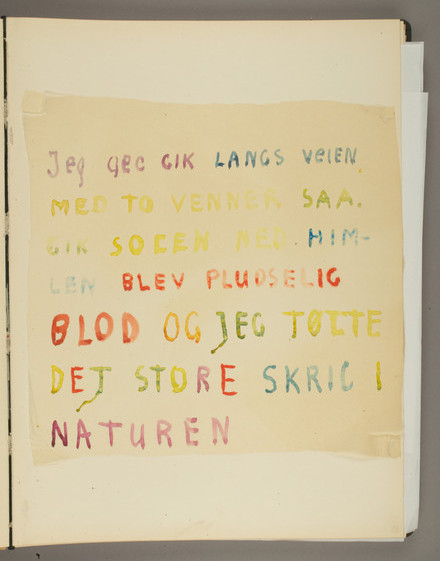 Jeg gec GIK LANGS VeIEN
MED TO VENNER SAA.
GIK SOLEN NED. HIM-
LEN BLEV PLUDSELIG
BLOD OG JEG FØLTE
DET STORE SKRIG I
NATUREN